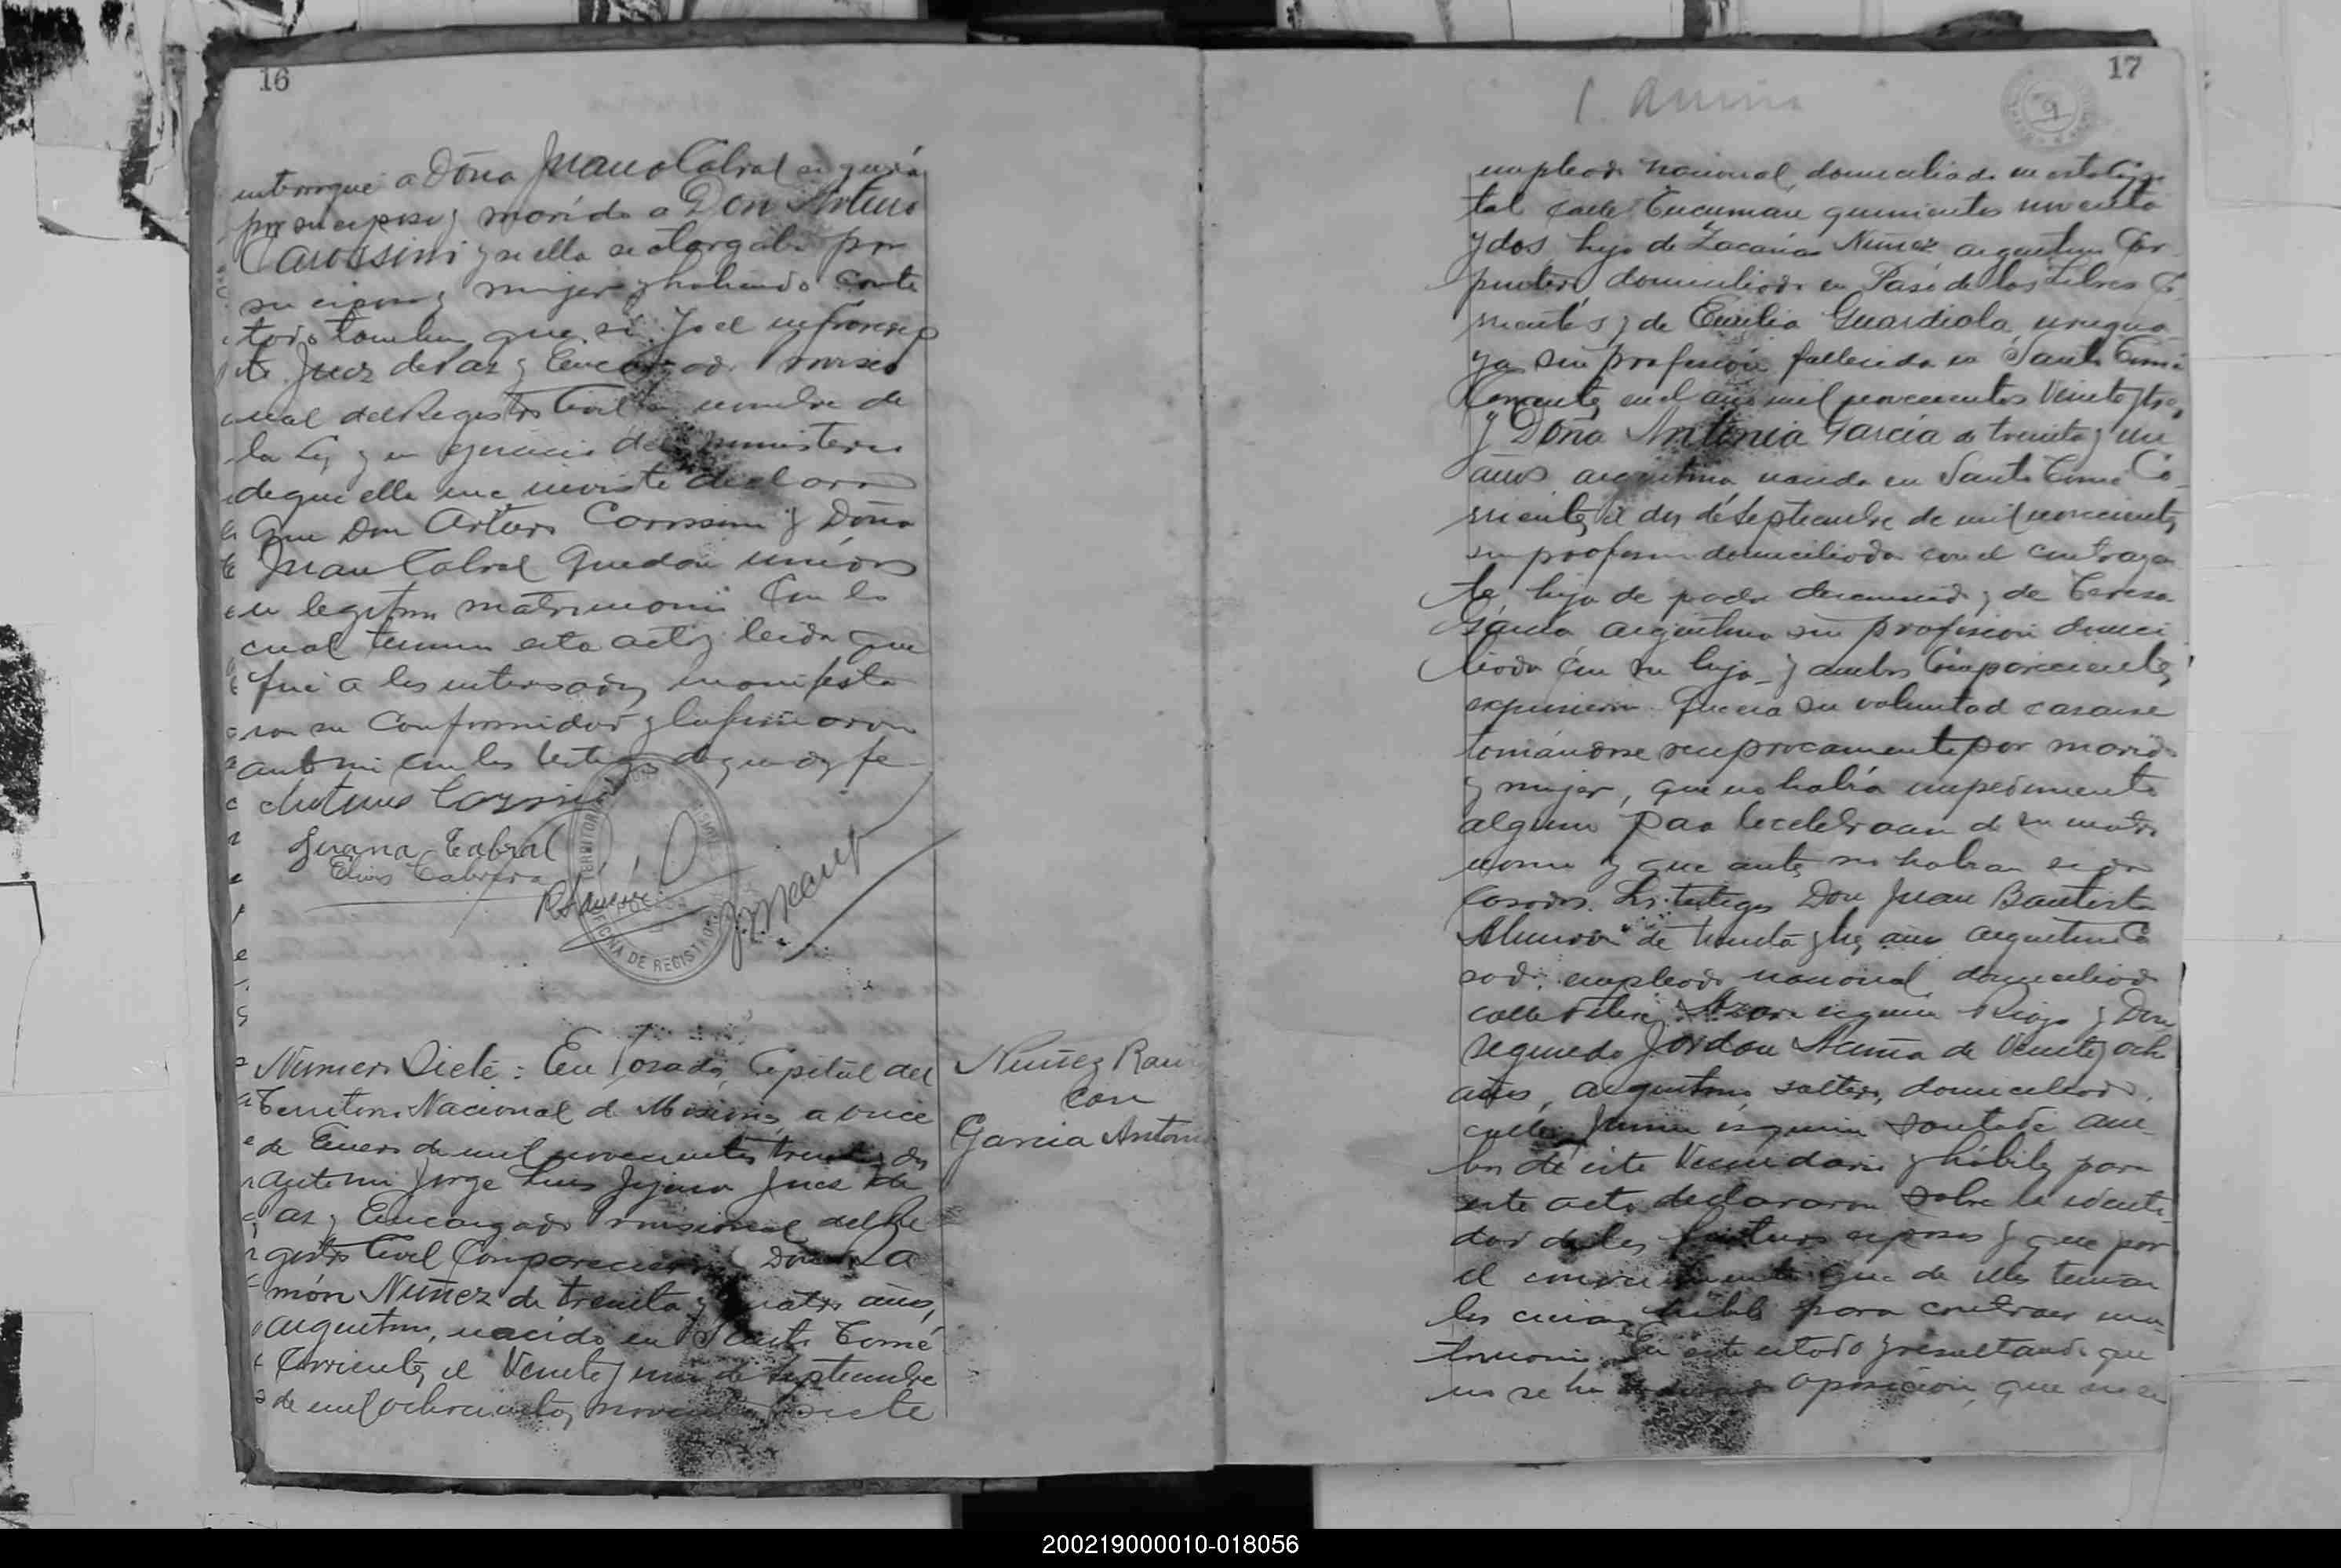 16
interrogué a Doña Juana Cabral si quería
por su esposo y marido a Don Arturo
Carossini y si ella se otorgaba por
su esposa y mujer y habiendo contes
tado tambien que si. Yo el infrascrip
to Juez de Paz y Encargado Provisio
nal del Registro Civil a nombre de
la Ley y en ejercicio del ministerio
de que ella me inviste declaro
que Don Arturo Carossini y Doña
Juana Cabral quedan unidos
en legitimo matrimonio Con lo
cual termino esta acta y leida que
fué a los interesados manifesta
ron su conformidad y la firmaron
ante mi con los testigos de que doy fe
Arturo
Juana Cabral
Elias Cabrera
OFICINA DE REGISTRO
Numero Siete: En Posadas, Capital del
Territorio Nacional de Misiones a once
de Enero de mil novecientos treinta y dos
ante mi Jorge Luis Juez de
Paz y Encargado Provisional del Re
gistro Civil Comparecieron Don Ra
món Nuñez de treinta y cuatro años,
argentino, nacido en Santo Tomé
Corrientes el Veinte y uno de Septiembre
de mil ochocientos noventa y siete
Nuñez Ram
con
Garcia Antoni
17
9
empleado nacional, domiciliado en esta Capi
tal calle Tucuman quinientos noventa
y dos, hijo de Zacarias Nuñez argentino Car
pintero domiciliado en Paso de los Libres Co
rrientes y de Emilia Guardiola, urugua
ya sin profesión fallecida en Santo Tomé
Corrientes en el año mil novecientos Veinte y tres
y Doña Antonia Garcia de treinta y un
años argentina nacida en Santo Tomé Co
rrientes el dos de Septiembre de mil novecientos
sin profesion domiciliada con el contrayen
te, hija de padre desconocido y de Teresa
Garcia argentina sin profesion domici
liada con su hija y ambos Comparecientes
expusieron: Que era su voluntad casarse
tomándose reciprocamente por marido
y mujer, que no había impedimento
alguno para la celebracion de su matri
monio y que antes no habian sido
casados. Los testigos Don Juan Bautista
de treinta y tres años argentino Ca
sado empleado nacional domiciliado
calle Felix Azara esquina Rioja y Don
Segundo Jordan Acuña de Veinte y ocho
años, argentino, soltero, domiciliado
calle Junin esquina am
bos de este Vecindario y hábiles para
este acto declararon sobre la identi
dad de los futuros esposos y que por
el conocimiento que de ellos tenian
los creian hábiles para contraer ma
trimonio. En este estado y resultando que
no se ha oposición, que
200219000010-018056